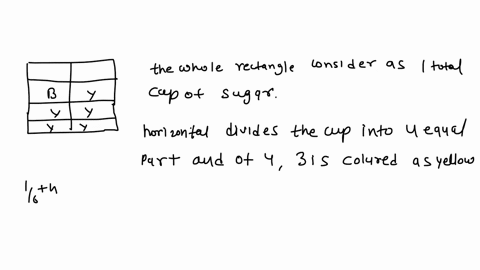 the whole rectangle consider as 1 total
cup of sugar.
B Y
Y Y
Y Y
horizontal divides the cup into 4 equal
part and of 4, 3 is coloured as yellow
1/6th